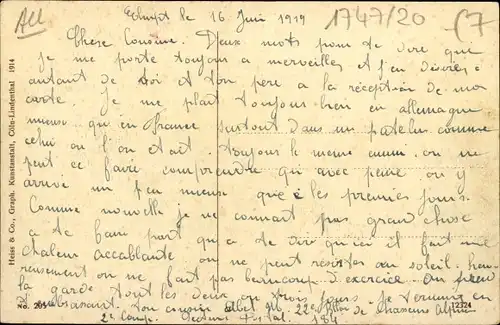 All
1747/20 (7
le 16 Juin 1919
Chere Cousine. Deux mots pour te dire que
je me porte toujours a merveilles et j'en desires
autant de toi et ton pere a la réception de ma
carte. Je me plait toujours bien en allemagne
mieux qu'en france surtout dans un patelin comme
celui ou l'on était. Toujours le meme ennui on ne
peut ce faire comprendre qui avec peine on y
arrive un peu mieux que les premiers jours.
Comme nouvelle je ne connait pas grand chose
a te faire part qu'a te dire qu'ier il fait une
chaleur accablante on ne peut resister au soleil heu-
reusement on ne fait pas beaucoup d'exercice. on prend
la garde tout les deux ou trois jours. Je termine en
t'embrassant. Ton cousin Albert 22e Bllon de Chasseurs Alpins
2e Comp. Secteur Postal. 184
Heiss & Co., Graph. Kunstanstalt, Cöln-Lindenthal 1914
No. 205
12324